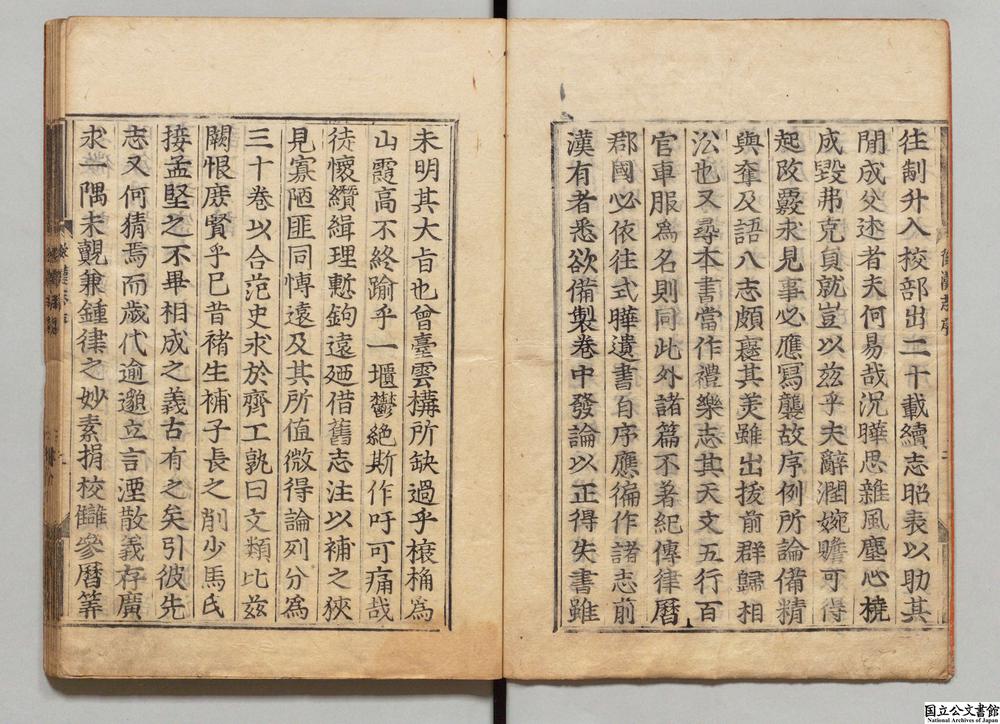 往制升入校部出二十載續志昭表以助其
間成父述者夫何易哉況曄思雜風塵心橈
成毀弗克員就豈以兹乎夫辭潤婉贍可得
起改覈求見事必應寫襲故序例所論備精
與奪及語八志頗襃其美雖出拔前群歸相
㳂也又尋本書當作禮樂志其天文五行百
官車服為名則同此外諸篇不著紀傳律曆
郡國必依往式曄遺書自序應徧作諸志前
漢有者悉欲備製卷中發論以正得失書雖
未明其大旨也曾臺雲構所缺過乎榱桷為
山霞高不終踰乎一壥鬱絶斯作吁可痛哉
徒懷纘緝理慙鉤遠廼借舊志注以補之狹
見寡陋匪同慱遠及其所值微得論列分為
三十卷以合范史求於齊工孰曰文類比兹
闕恨庶賢乎已昔褚生補子長之削少馬氏
接孟堅之不畢相成之義古有之矣引彼先
志又何猜焉而歲代逾邈立言湮散義存廣
求一隅未覿兼鍾律之妙素揖校讎參曆筭
国立公文書館
National Archives of Japan